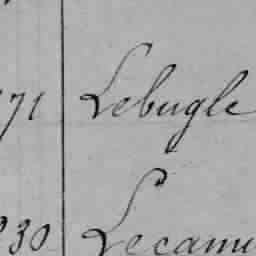 71 Lebugle
30 Lecamu